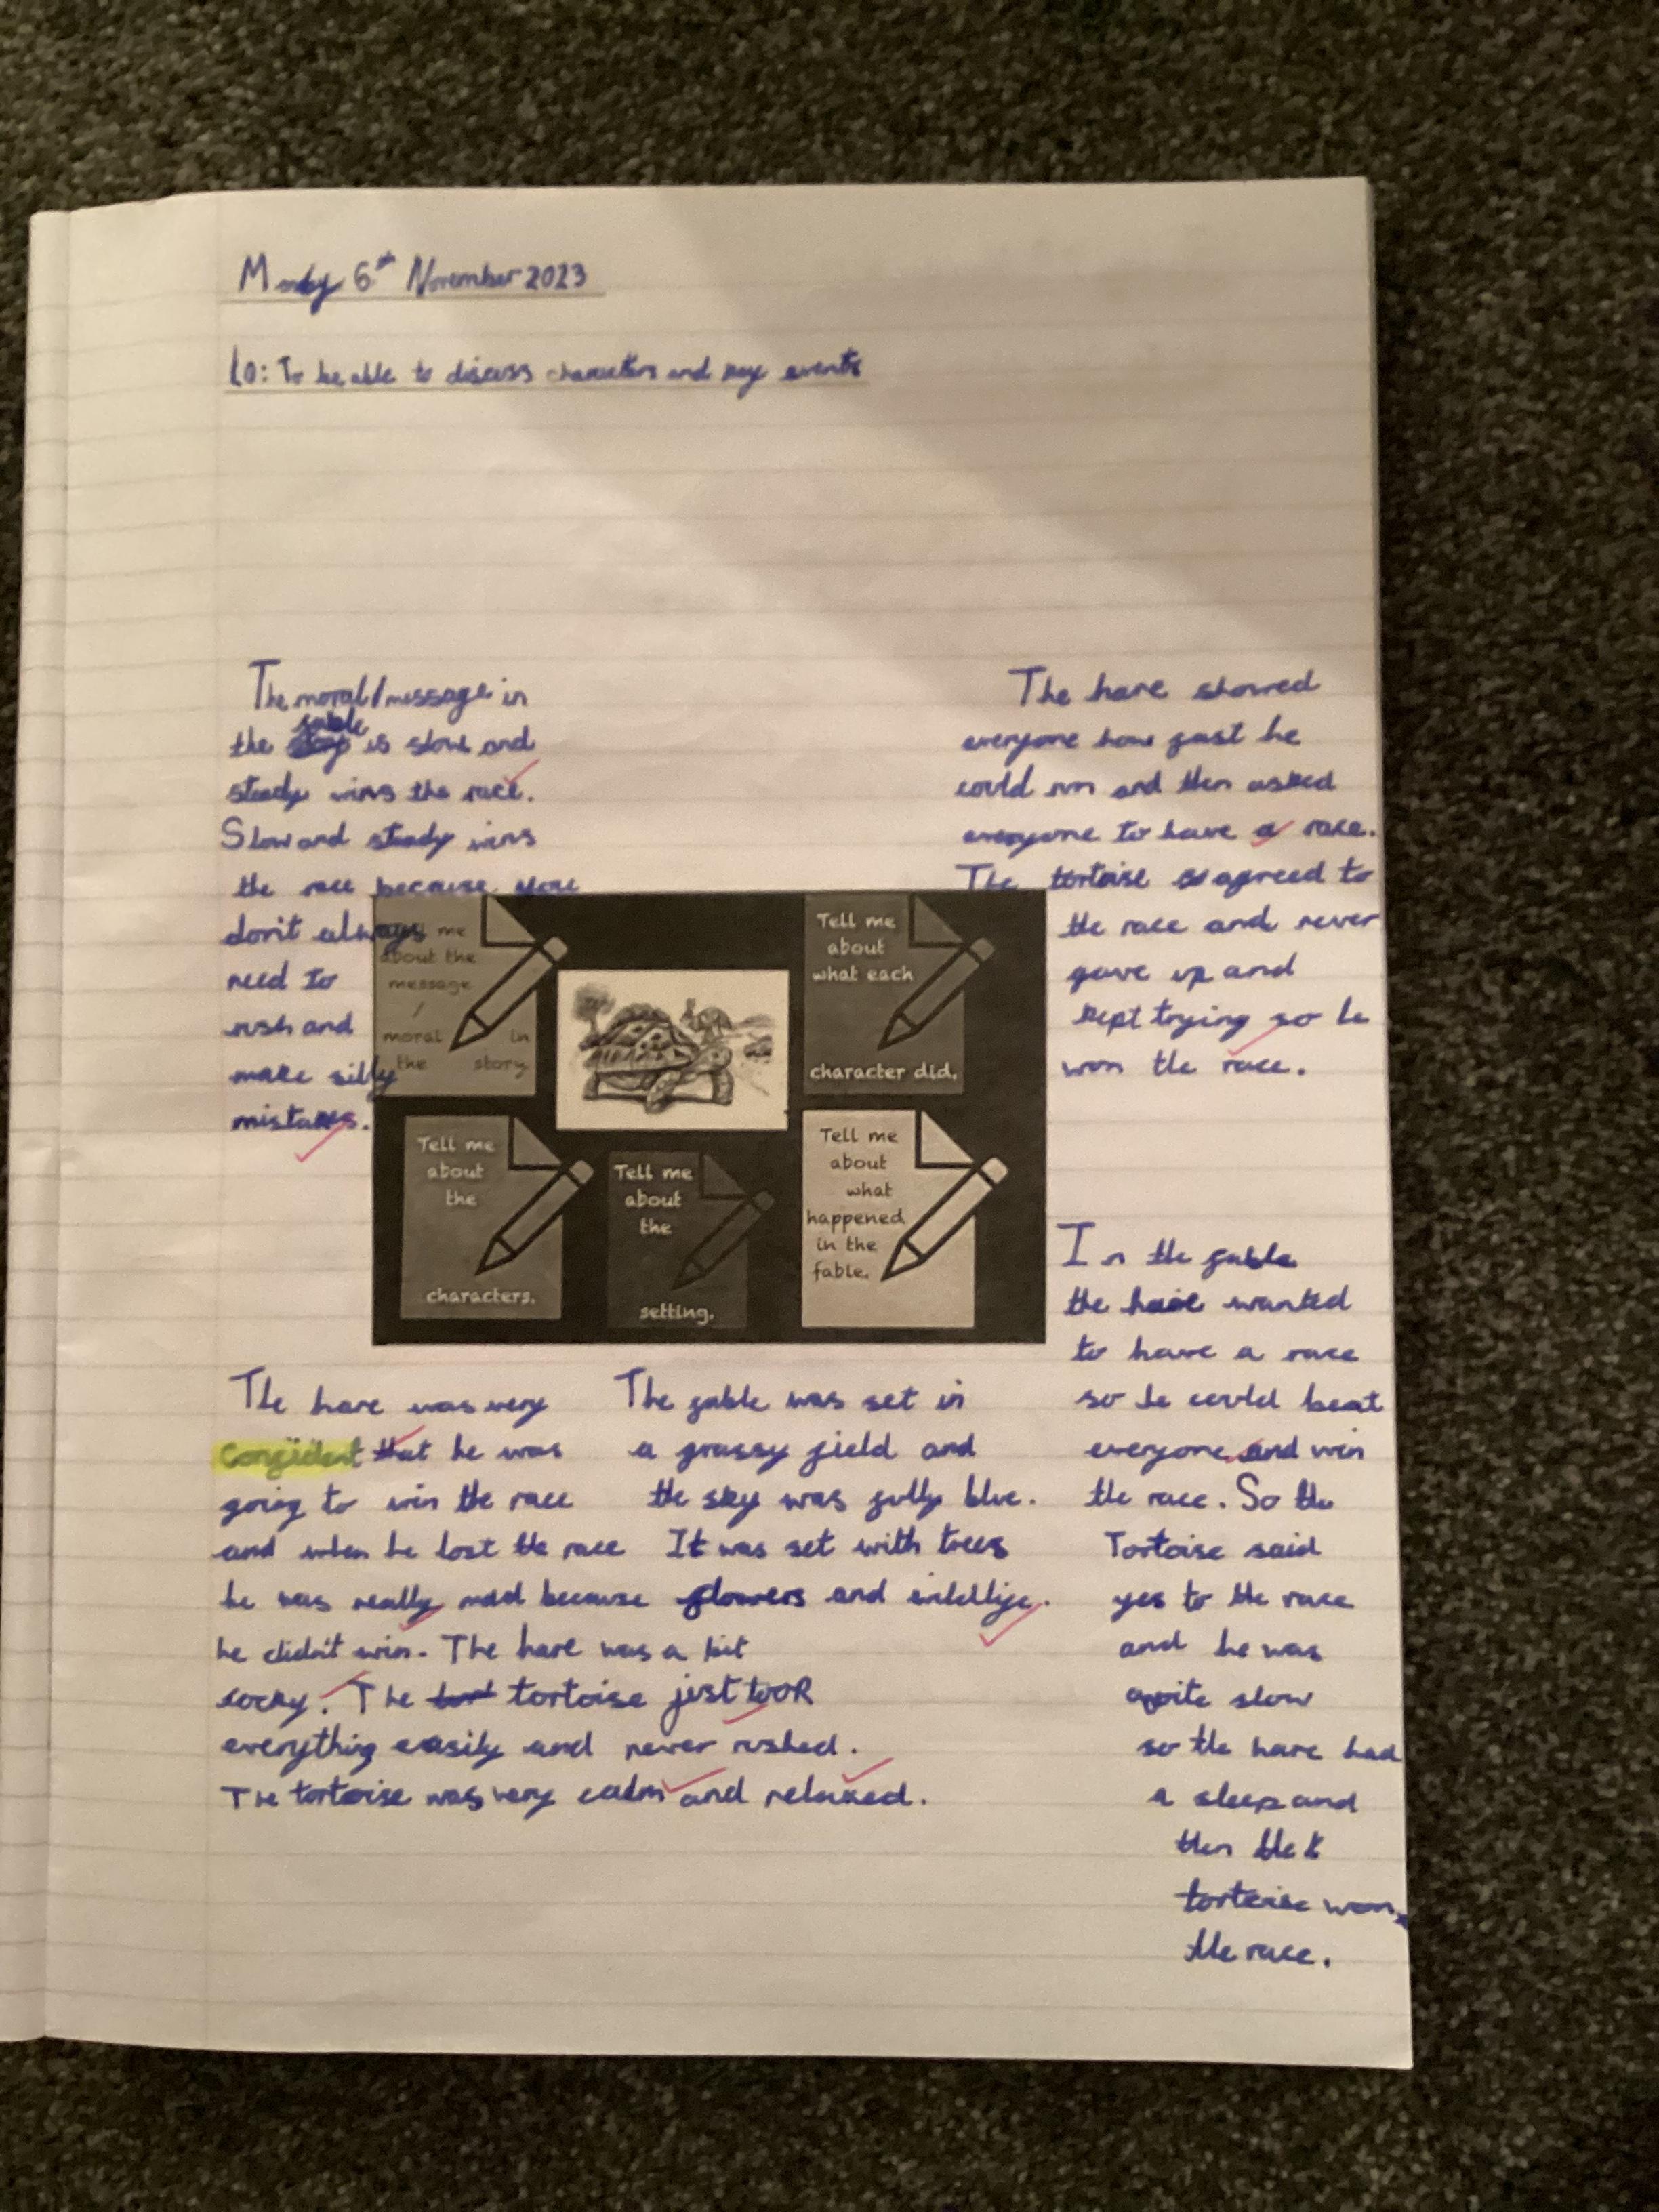 Monday 6th November 2023
LO: To be able to discuss characters and key events
The moral/message in
fable
the is slow and
steady wins the race.
Slow and steady wins
the race because
don't always
need to
rush and
make silly
mistakes.
The hare showed
everyone how fast he
could run and then asked
everyone to have a race.
The tortoise agreed to
the race and never
gave up and
kept trying so he
won the race.
me
about the
message
/
moral in
the story
Tell me
about
what each
character did.
Tell me
about
the
characters.
Tell me
about
the
setting.
Tell me
about
what
happened
in the
fable.
The hare was very
confident that he was
going to win the race
and when he lost the race
he was really mad because
he didn't win. The hare was a bit
cocky. The tortoise just took
everything easily and never rushed.
The tortoise was very calm and relaxed.
The fable was set in
a grassy field and
the sky was fully blue.
It was set with trees
flowers and wildlife.
In the fable
the hare wanted
to have a race
so he could beat
everyone and win
the race. So the
Tortoise said
yes to the race
and he was
quite slow
so the hare had
a sleep and
then the
tortoise won
the race.